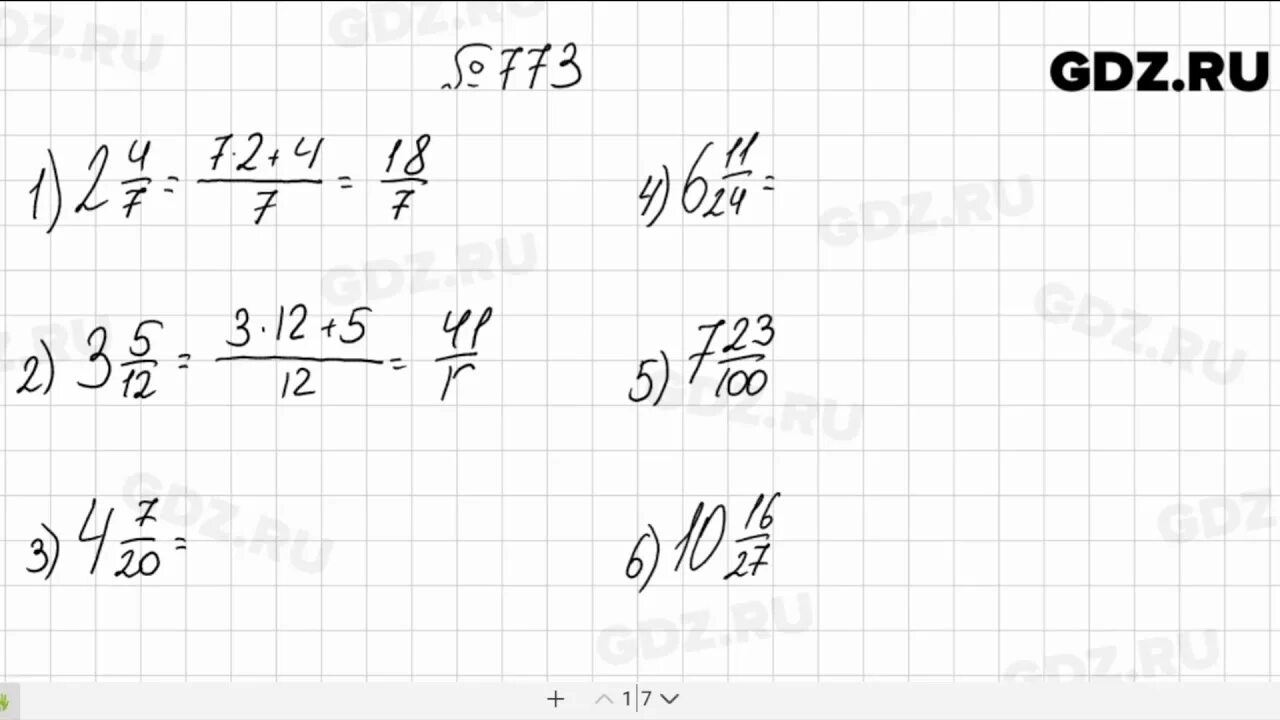 № 773
GDZ.RU
1) 2 4/7 = (7·2+4)/7 = 18/7
2) 3 5/12 = (3·12+5)/12 = 41/1
3) 4 7/20 =
4) 6 11/24 =
5) 7 23/100
6) 10 16/27
GDZ.RU
GDZ.RU
GDZ.RU
GDZ.RU
GDZ.RU
GDZ.RU
GDZ.RU
GDZ.RU
GDZ
GDZ.RU
GDZ.RU
1|7